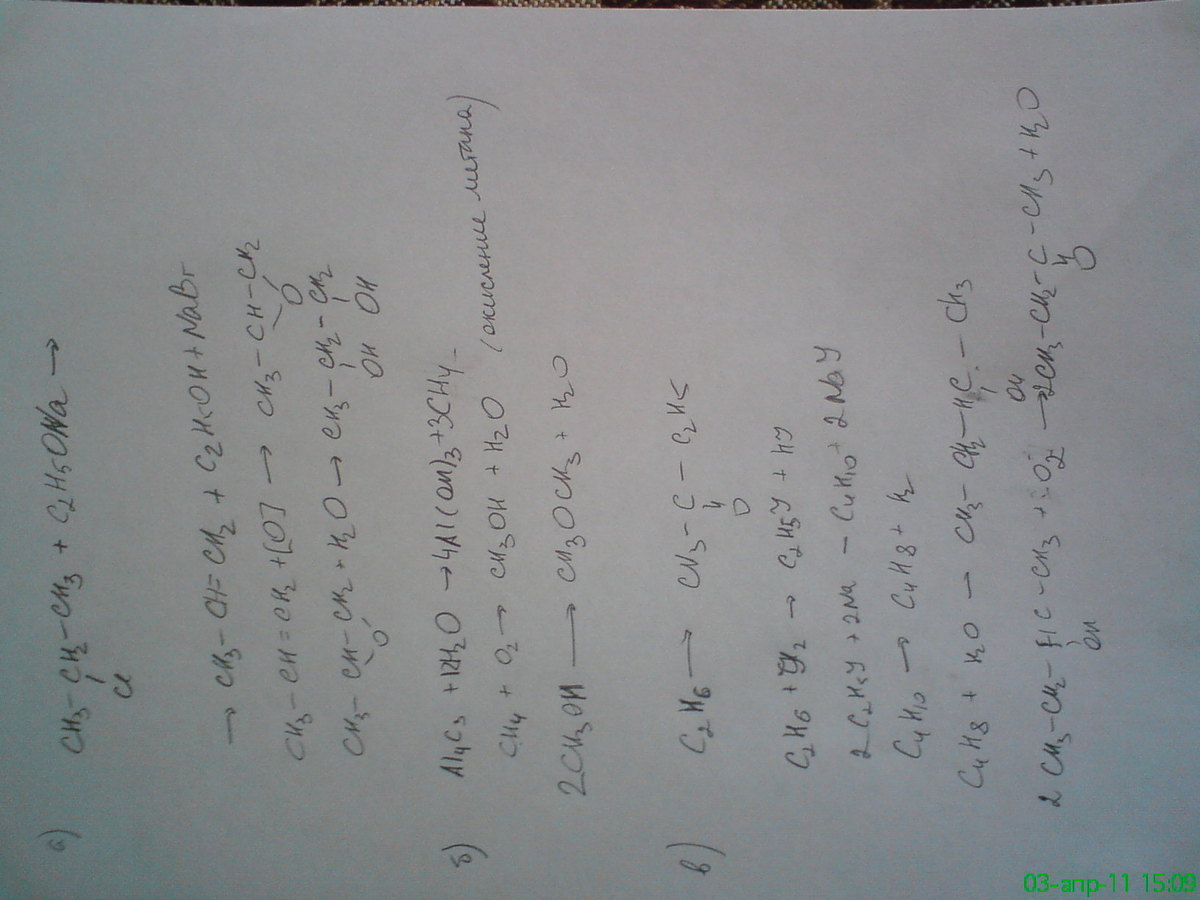 а)
CH3 - CH2 - CH3 + C2H5ONa →
Cl
→ CH3 - CH = CH2 + C2H5OH + NaBr
CH3 - CH = CH2 + [O] → CH3 - CH - CH2
O
CH3 - CH - CH2 + H2O → CH3 - CH2 - CH2
O OH OH
б) Al4C3 + 12H2O → 4Al(OH)3 + 3CH4
CH4 + O2 → CH3OH + H2O (окисление метана)
2CH3OH → CH3OCH3 + H2O
в) C2H6 → CH3 - C - C2H5
O
C2H6 + J2 → C2H5J + HJ
2C2H5J + 2Na - C4H10 + 2NaJ
C4H10 → C4H8 + H2
C4H8 + H2O - CH3 - CH2 - HC - CH3
OH
2CH3 - CH2 - HC - CH3 + O2 → 2CH3 - CH2 - C - CH3 + H2O
OH O
03-апр-11 15:09